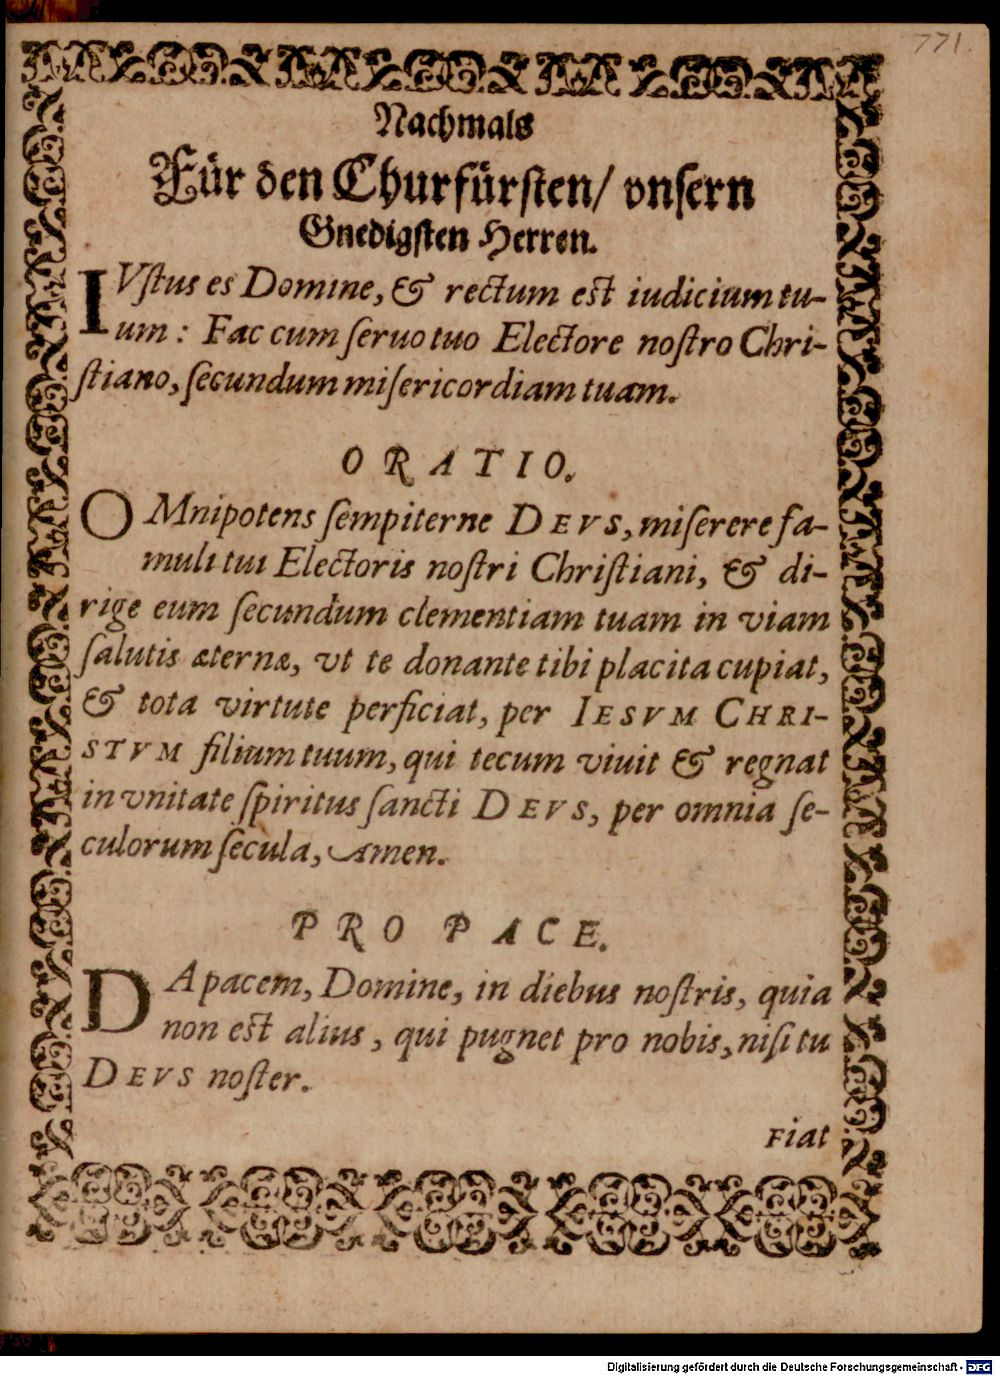 771.
Nachmals
Für den Churfürsten/ vnsern
Gnedigsten Herren.
IVſtus es Domine, & rectum est iudicium tu-
um : Fac cum ſeruo tuo Electore noſtro Chri-
ſtiano, ſecundum miſericordiam tuam.
ORATIO.
OMnipotens ſempiterne DEVS, miſerere fa-
muli tui Electoris noſtri Chriſtiani, & di-
rige eum ſecundum clementiam tuam in viam
ſalutis æternæ, vt te donante tibi placita cupiat,
& tota virtute perficiat, per IESVM CHRI-
STVM filium tuum, qui tecum viuit & regnat
in vnitate ſpiritus ſancti DEVS, per omnia ſe-
culorum ſecula, Amen.
PRO PACE.
DA pacem, Domine, in diebus noſtris, quia
non est alius, qui pugnet pro nobis, niſi tu
DEVS noſter.
Fiat
Digitalisierung gefördert durch die Deutsche Forschungsgemeinschaft - DFG